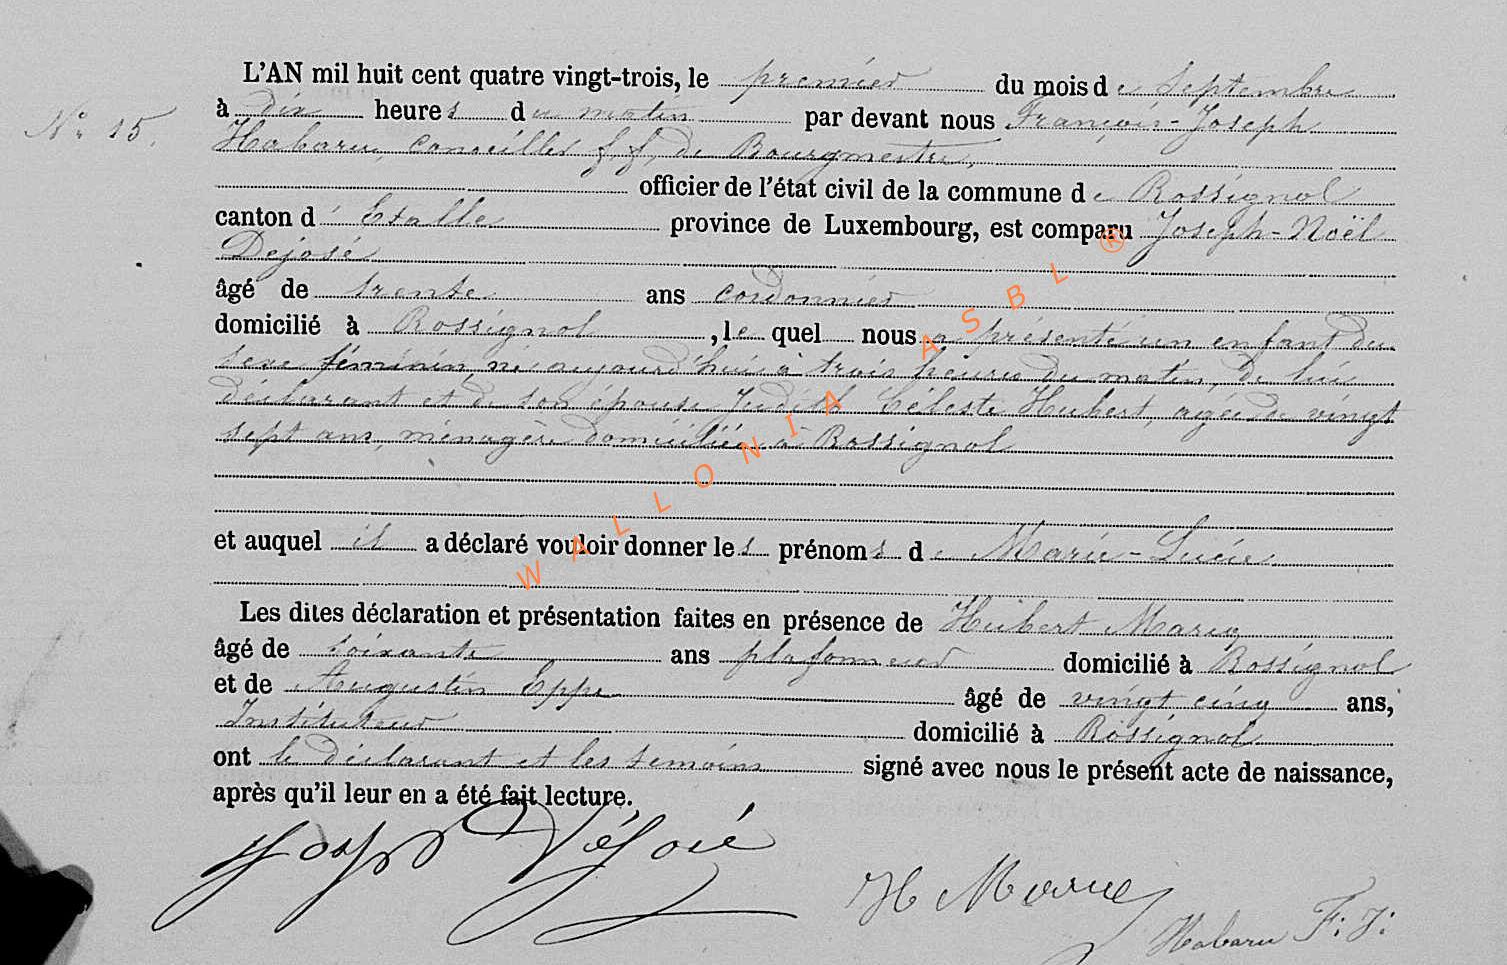 L'AN mil huit cent quatre vingt-trois, le premier du mois de Septembre
N° 15. à dix heures du matin par devant nous François-Joseph
Habaru, Conseiller f. f. de Bourgmestre,
officier de l'état civil de la commune de Rossignol
canton d' Etalle province de Luxembourg, est comparu Joseph-Noël
Dejosé
âgé de trente ans cordonnier
domicilié à Rossignol, lequel nous a présenté un enfant du
sexe féminin, né aujourd'hui à trois heures du matin, de lui
déclarant et de son épouse Judith Céleste Hubert, agée de vingt
sept ans, ménagère domiciliée à Rossignol
et auquel il a déclaré vouloir donner les prénoms de Marie-Lucie
Les dites déclaration et présentation faites en présence de Hubert Marcq
âgé de soixante ans plafonneur domicilié à Rossignol
et de Augustin Eppe âgé de vingt cinq ans,
Instituteur domicilié à Rossignol
ont le déclarant et les temoins signé avec nous le présent acte de naissance,
après qu'il leur en a été fait lecture.
Joseph Déjosé
H Marcq
Habaru F: J:
WALLONIA ASBL ®